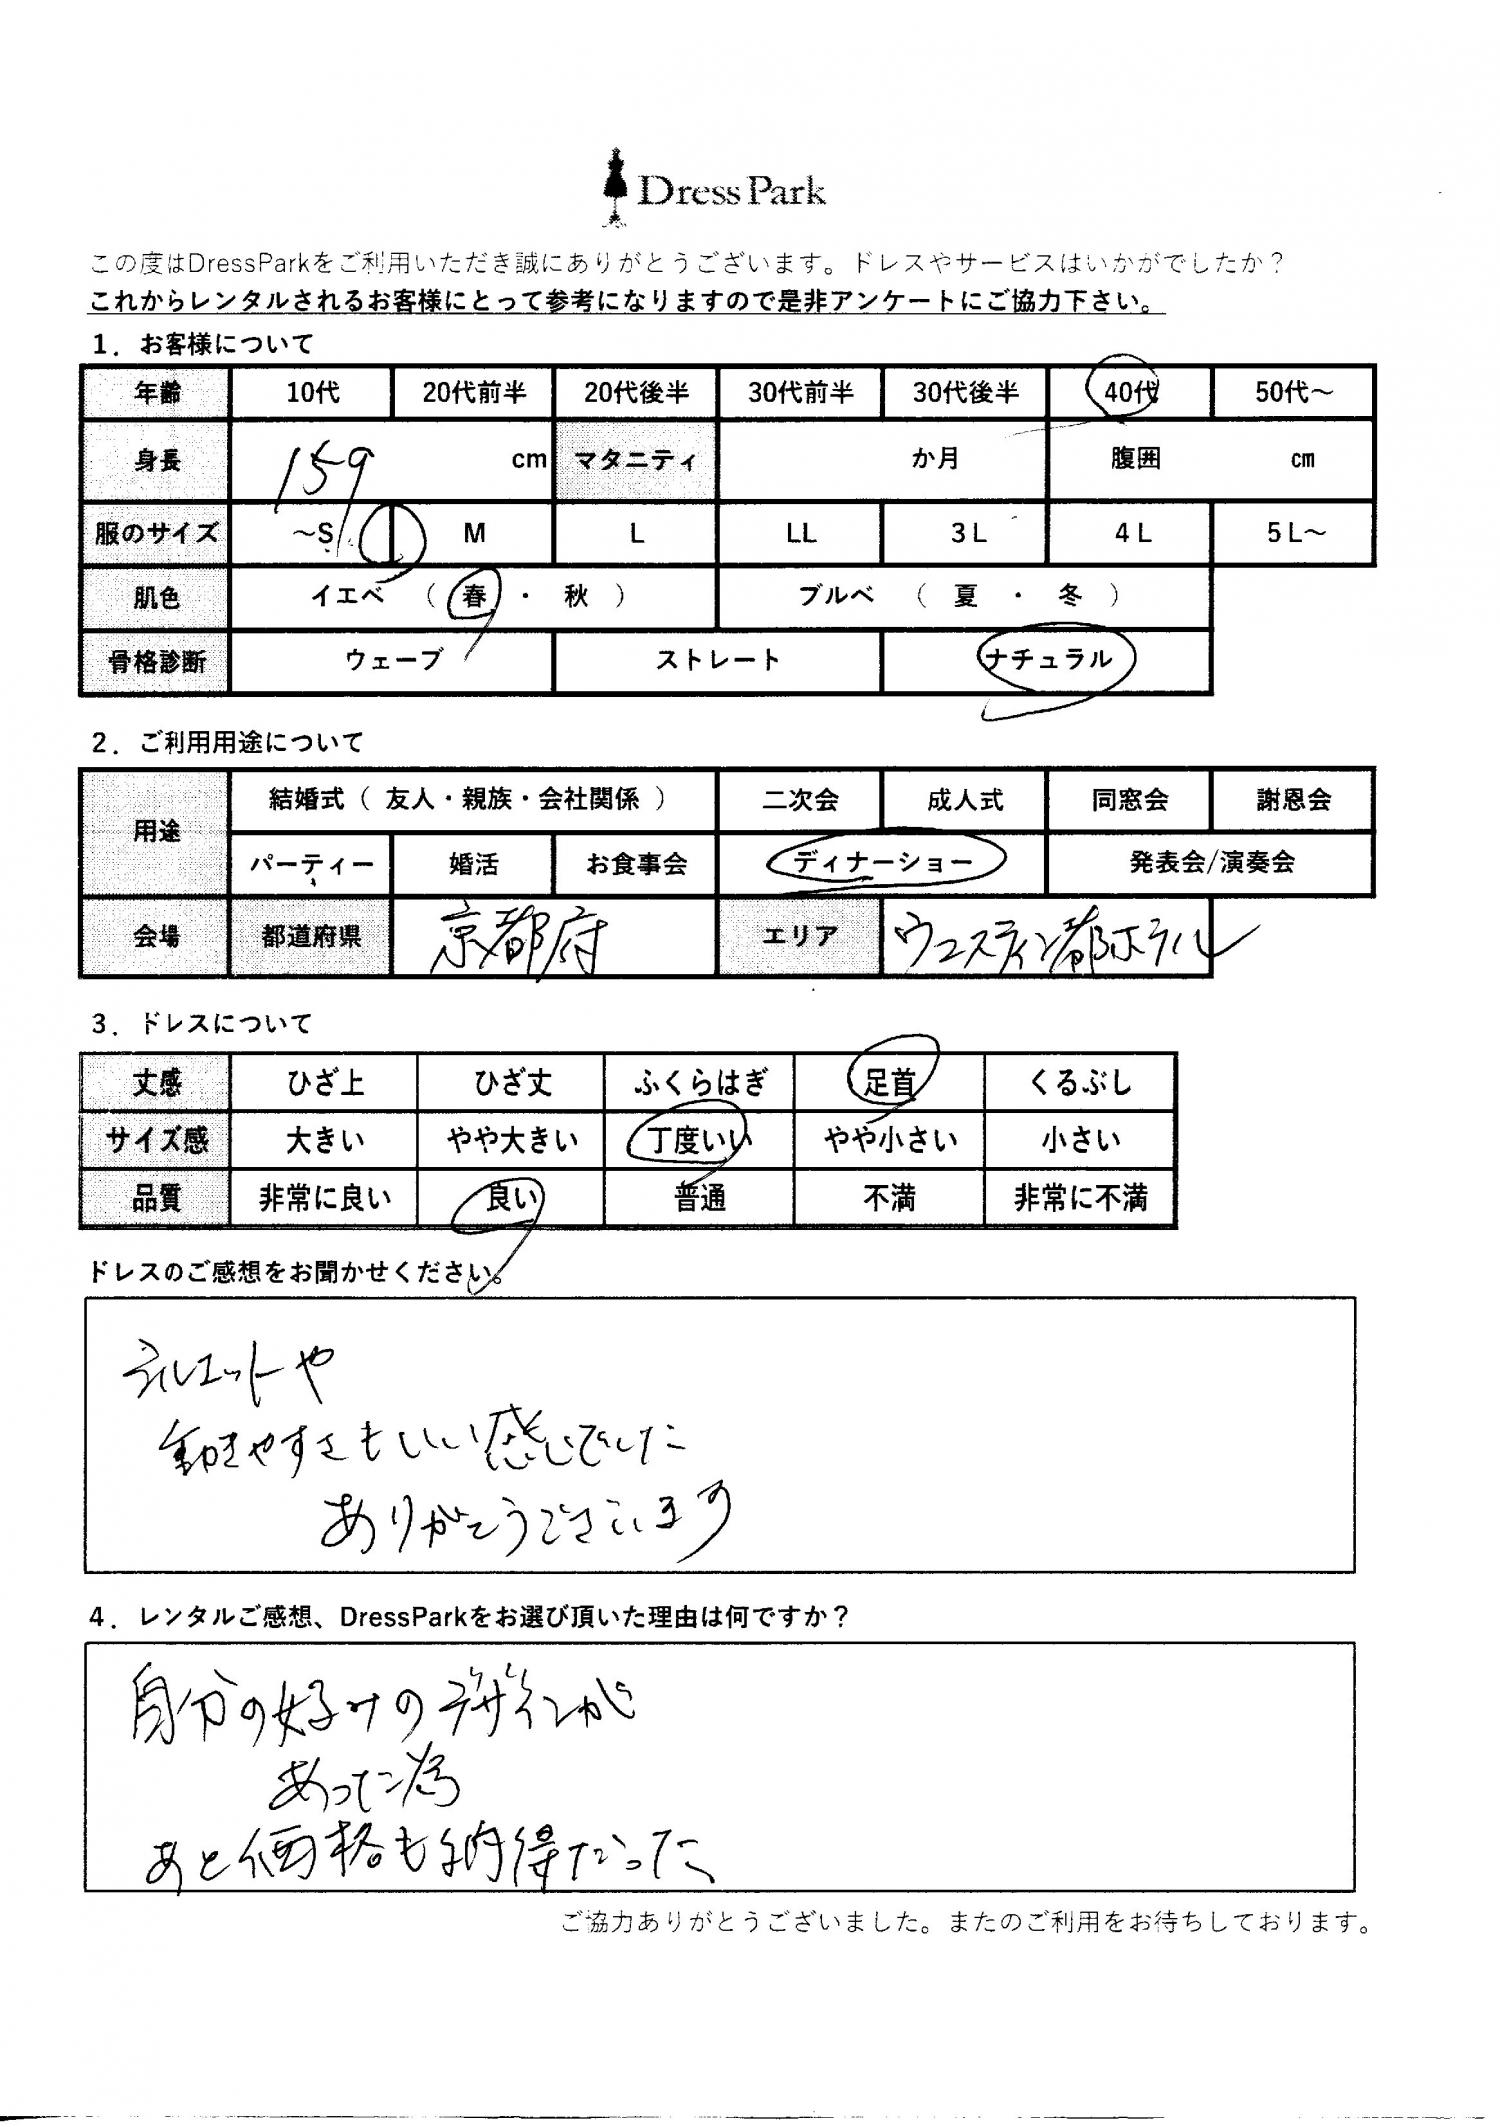 Dress Park
この度はDressParkをご利用いただき誠にありがとうございます。ドレスやサービスはいかがでしたか？
これからレンタルされるお客様にとって参考になりますので是非アンケートにご協力下さい。
1．お客様について
年齢 10代 20代前半 20代後半 30代前半 30代後半 40代 50代～
身長 159 cm マタニティ か月 腹囲 cm
服のサイズ ～S M L LL 3L 4L 5L～
肌色 イエベ （ 春 ・ 秋 ） ブルベ （ 夏 ・ 冬 ）
骨格診断 ウェーブ ストレート ナチュラル
2．ご利用用途について
用途 結婚式（ 友人・親族・会社関係 ） 二次会 成人式 同窓会 謝恩会
パーティー 婚活 お食事会 ディナーショー 発表会/演奏会
会場 都道府県 京都府 エリア ウェスティン都ホテル
3．ドレスについて
丈感 ひざ上 ひざ丈 ふくらはぎ 足首 くるぶし
サイズ感 大きい やや大きい 丁度いい やや小さい 小さい
品質 非常に良い 良い 普通 不満 非常に不満
ドレスのご感想をお聞かせください。
シルエットや
動きやすさもいい感じでした
ありがとうございます
4．レンタルご感想、DressParkをお選び頂いた理由は何ですか？
自分の好みのデザインが
あった為
あと価格も納得だった
ご協力ありがとうございました。またのご利用をお待ちしております。